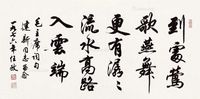 到處鶯
歌燕舞
更有潺々
流水高路
入雲端
毛主席詞句
建新同志
一九七六年任政